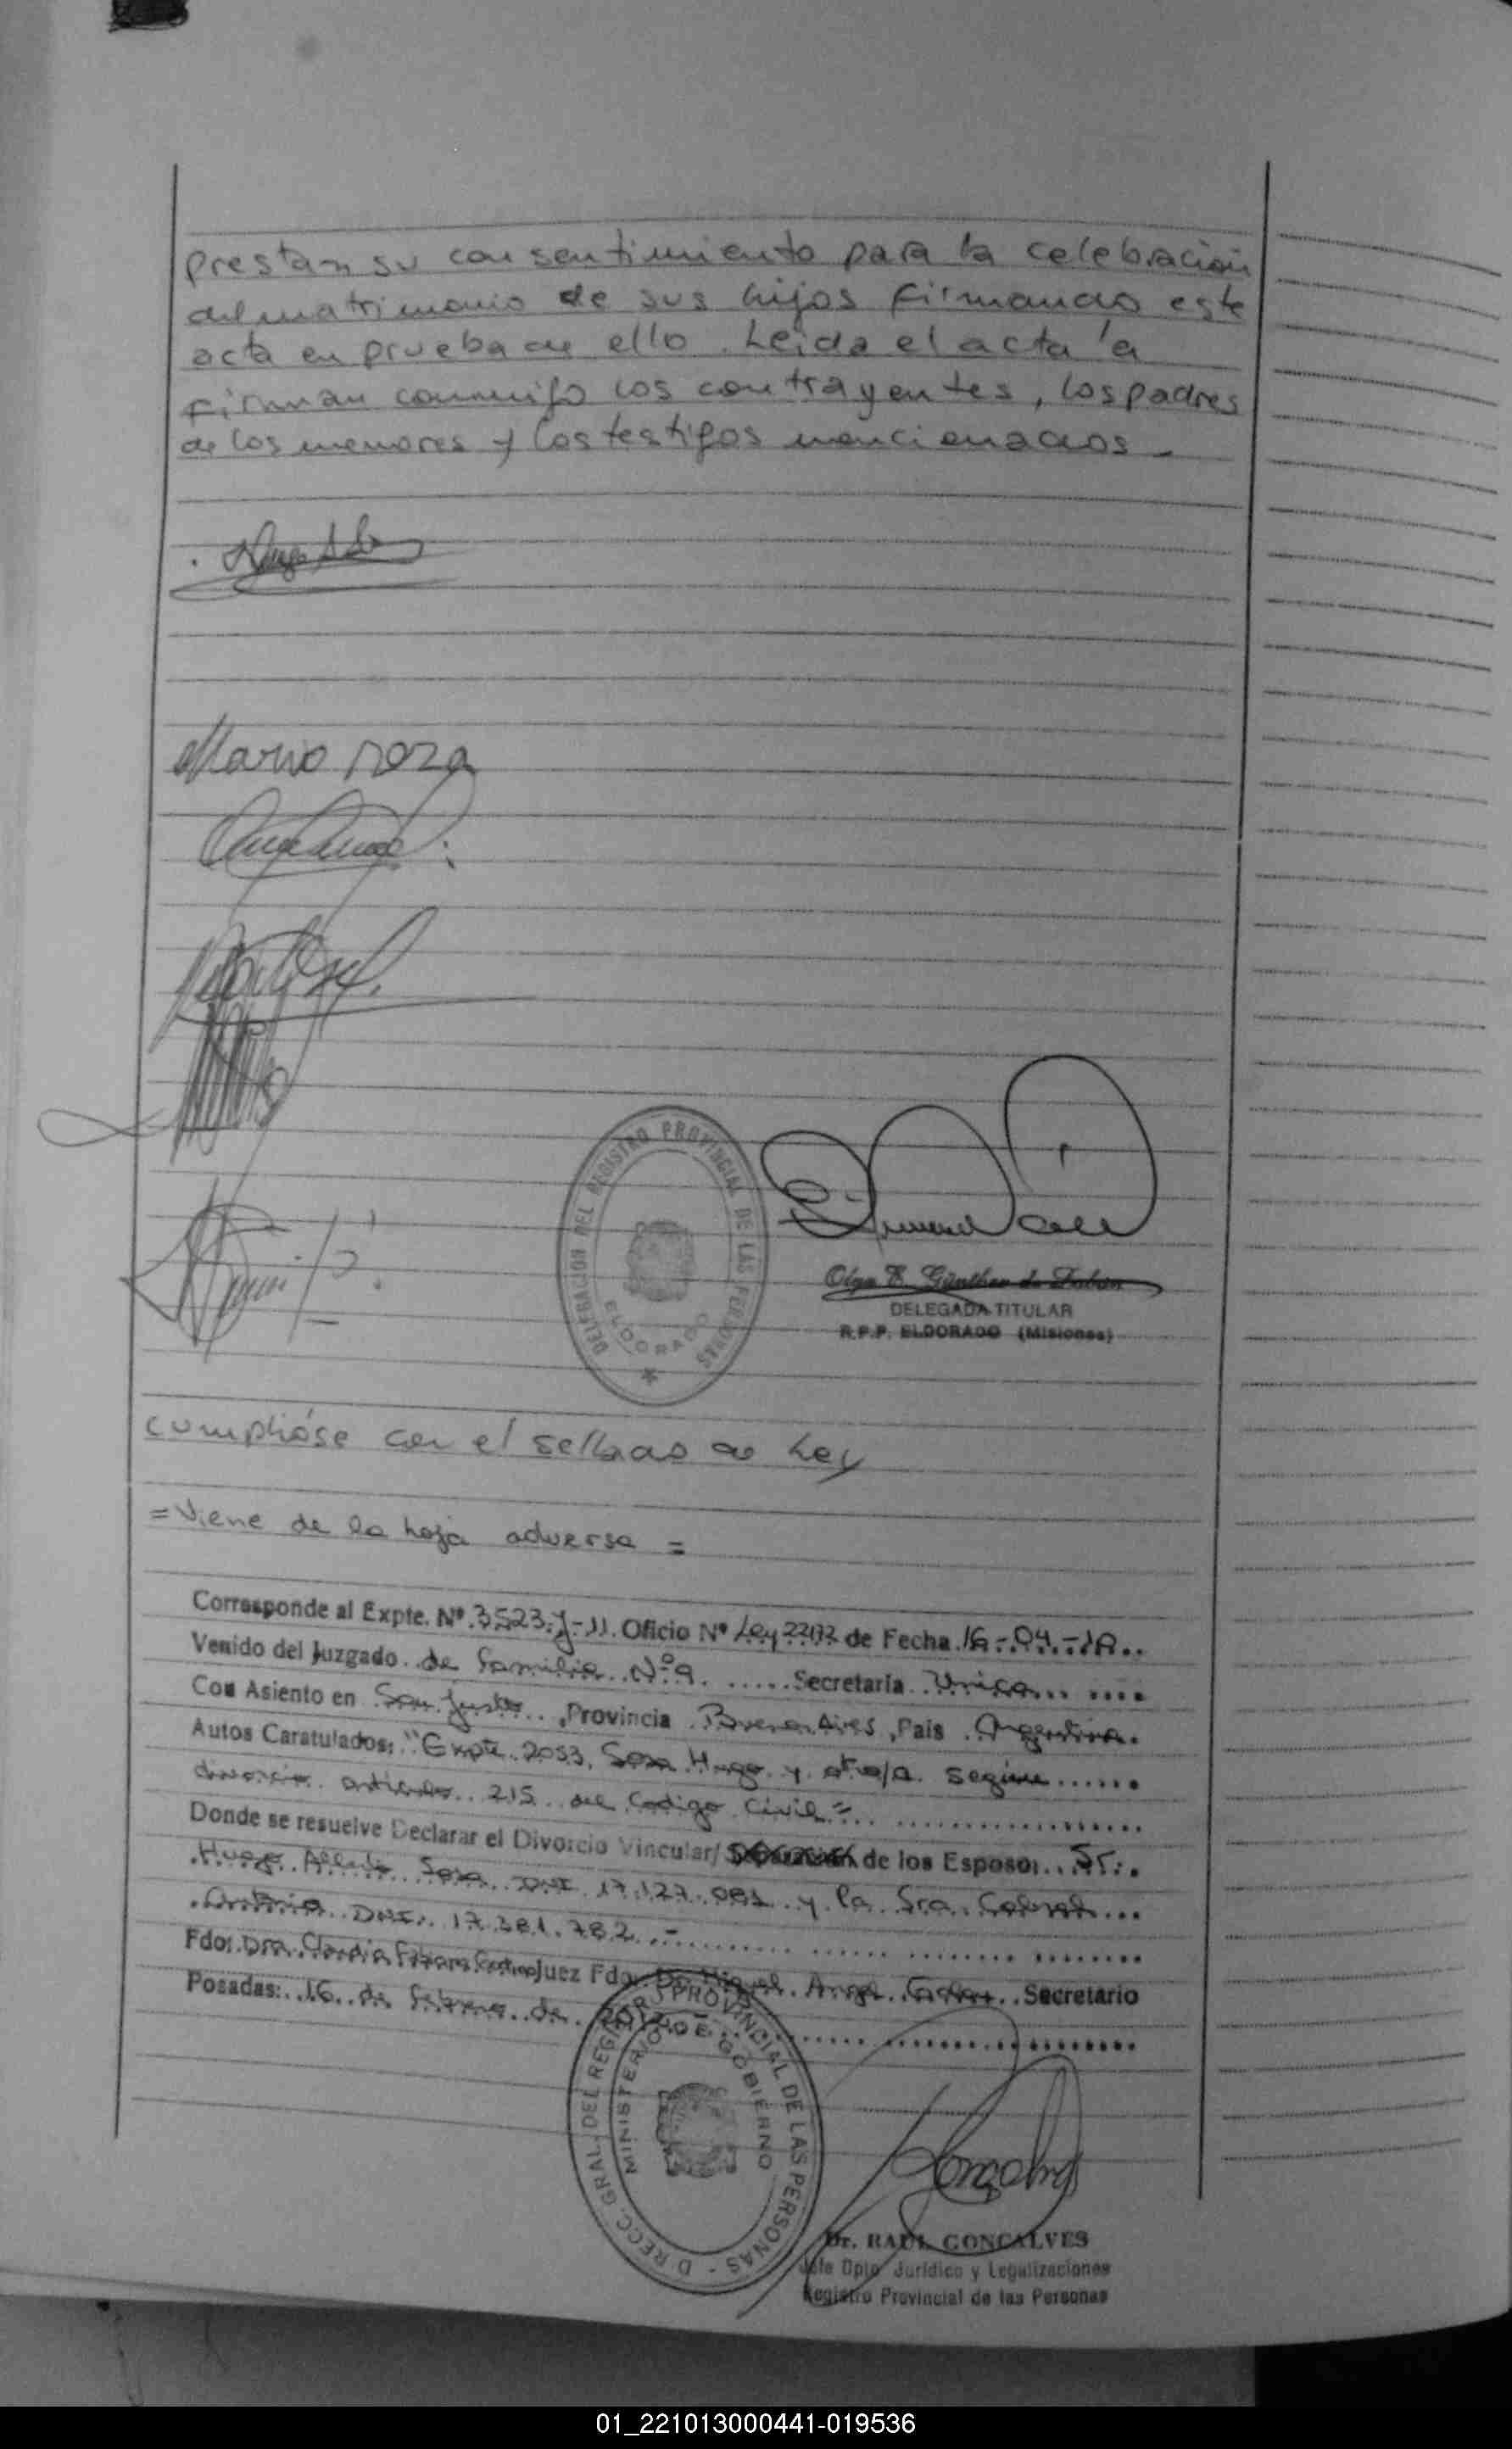 prestan su consentimiento para la celebración
del matrimonio de sus hijos firmando este
acta en prueba de ello. Leida el acta la
firman conmigo los contrayentes, los padres
de los menores y los testigos mencionados.
Mario
DELEGACION DEL REGISTRO PROVINCIAL DE LAS PERSONAS
ELDORADO
Olga Günther de
DELEGADA TITULAR
R.P.P. ELDORADO (Misiones)
cumplióse con el sellado de Ley
= Viene de la hoja adversa =
Corresponde al Expte. Nº 3523-J-11. Oficio Nº Ley 22172 de Fecha
Venido del Juzgado de familia Nº 9. Secretaría Unica
Con Asiento en San Justo, Provincia Buenos Aires, País Argentina.
Autos Caratulados: "Expte. 2053, Sosa Hugo y otro/a según
divorcio artículo 215 del Codigo Civil =
Donde se resuelve Declarar el Divorcio Vincular/ de los Esposo: Sr.
Hugo Alberto Sosa DNI 17.127.081 y la Sra. Cabral
Antonia DNI: 17.381.782.-
Fdo: Dra. Claudia Juez Fdo: Dr. Miguel Angel Secretario
Posadas: 16 de febrero de
DIRECC. GRAL. DEL REGISTRO PROVINCIAL DE LAS PERSONAS
MINISTERIO DE GOBIERNO
Dr. RAUL GONCALVES
Jefe Dpto Jurídico y Legalizaciones
Registro Provincial de las Personas
01_221013000441-019536